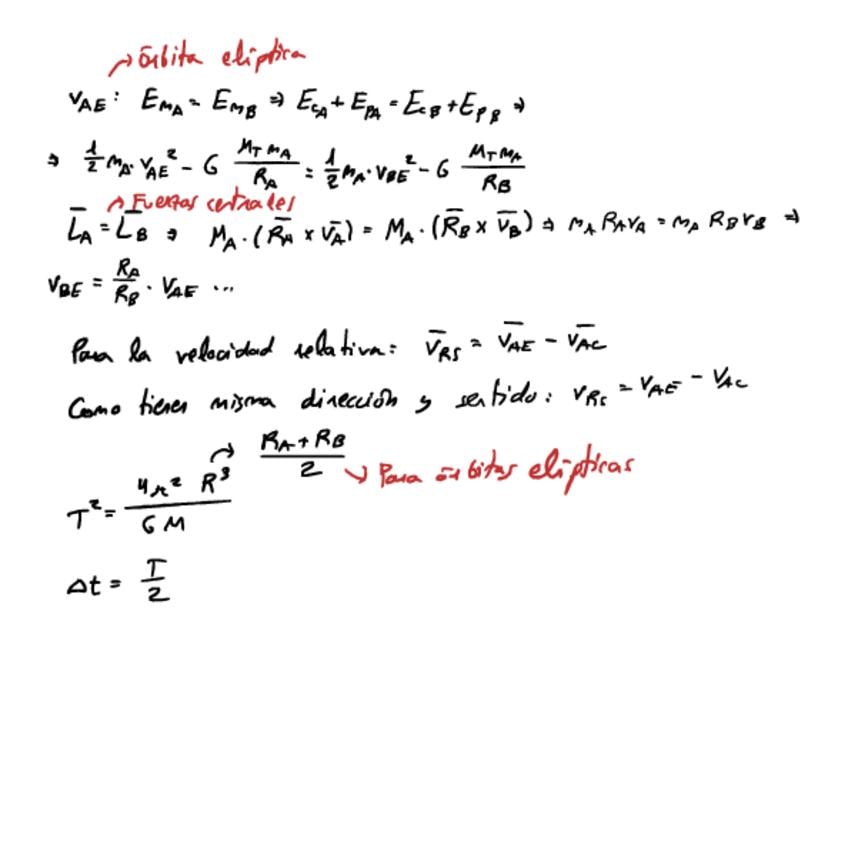 → Órbita elíptica
V_AE : E_mA = E_mB ⇒ E_cA + E_pA = E_cB + E_pB ⇒
⇒ 1/2 m_A · V_AE² - G M_T m_A / R_A = 1/2 m_A · V_BE² - G M_T m_A / R_B
→ Fuerzas centrales
L̄_A = L̄_B ⇒ M_A · (R̄_A × v̄_A) = M_A · (R̄_B × v̄_B) ⇒ m_A R_A v_A = m_A R_B v_B ⇒
V_BE = R_A / R_B · V_AE ...
Para la velocidad relativa: v̄_RS = v̄_AE - v̄_AC
Como tienen misma dirección y sentido: v_RS = v_AE - v_AC
T² = 4π² R³ / G M → R_A + R_B / 2 → Para órbitas elípticas
Δt = T / 2